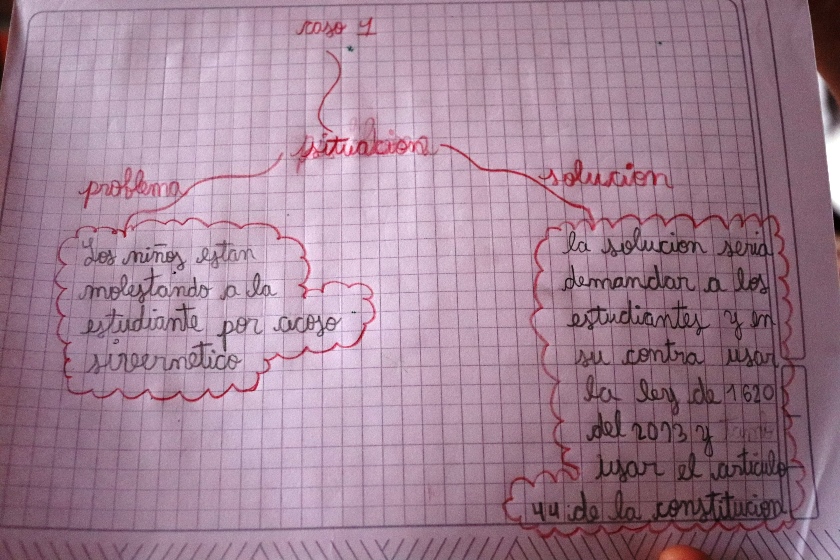 caso 1
situacion
problema
solucion
Los niños estan
molestando a la
estudiante por acoso
siveernetico
la solucion seria
demandar a los
estudiantes y en
su contra usar
la ley de 1620
del 2013 y
usar el articulo
44 de la constitucion